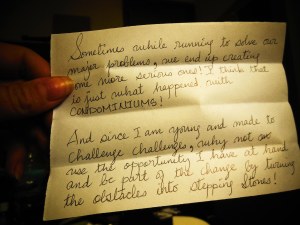 Sometimes while running to solve our
major problems, we end up creating
one more serious ones! I think that
is just what happened with
CONDOMINIUMS!
And since I am young and made to
challenge challenges, why not
use the opportunity I have at hand
and be part of the change by turning
the obstacles into stepping stones!